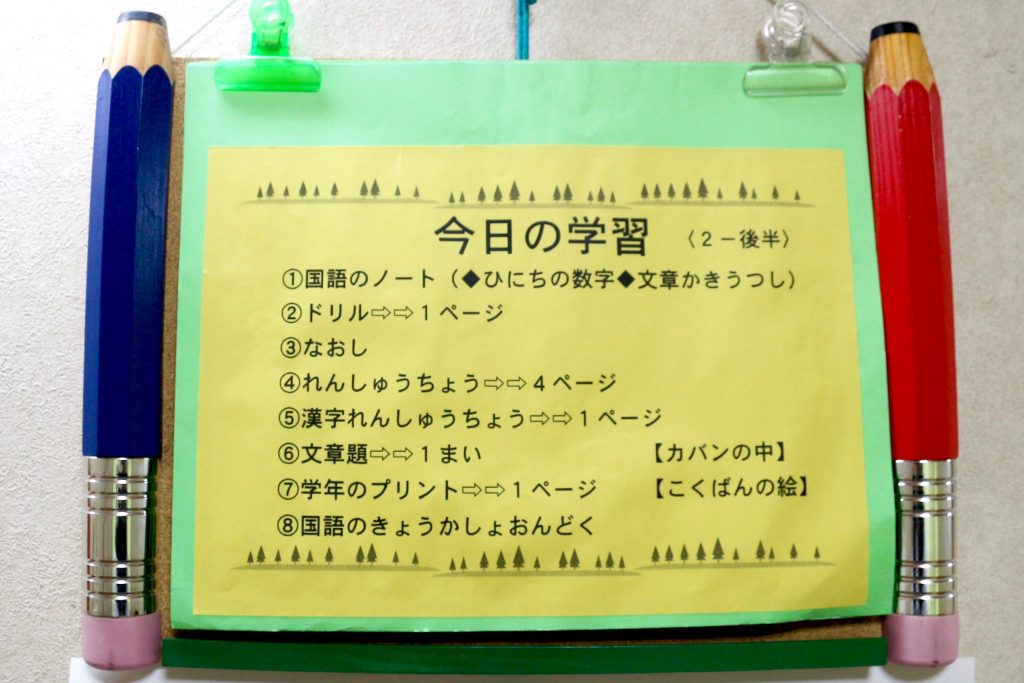 今日の学習 〈２－後半〉
①国語のノート（◆ひにちの数字◆文章かきうつし）
②ドリル⇨⇨１ページ
③なおし
④れんしゅうちょう⇨⇨４ページ
⑤漢字れんしゅうちょう⇨⇨１ページ
⑥文章題⇨⇨１まい 【カバンの中】
⑦学年のプリント⇨⇨１ページ 【こくばんの絵】
⑧国語のきょうかしょおんどく